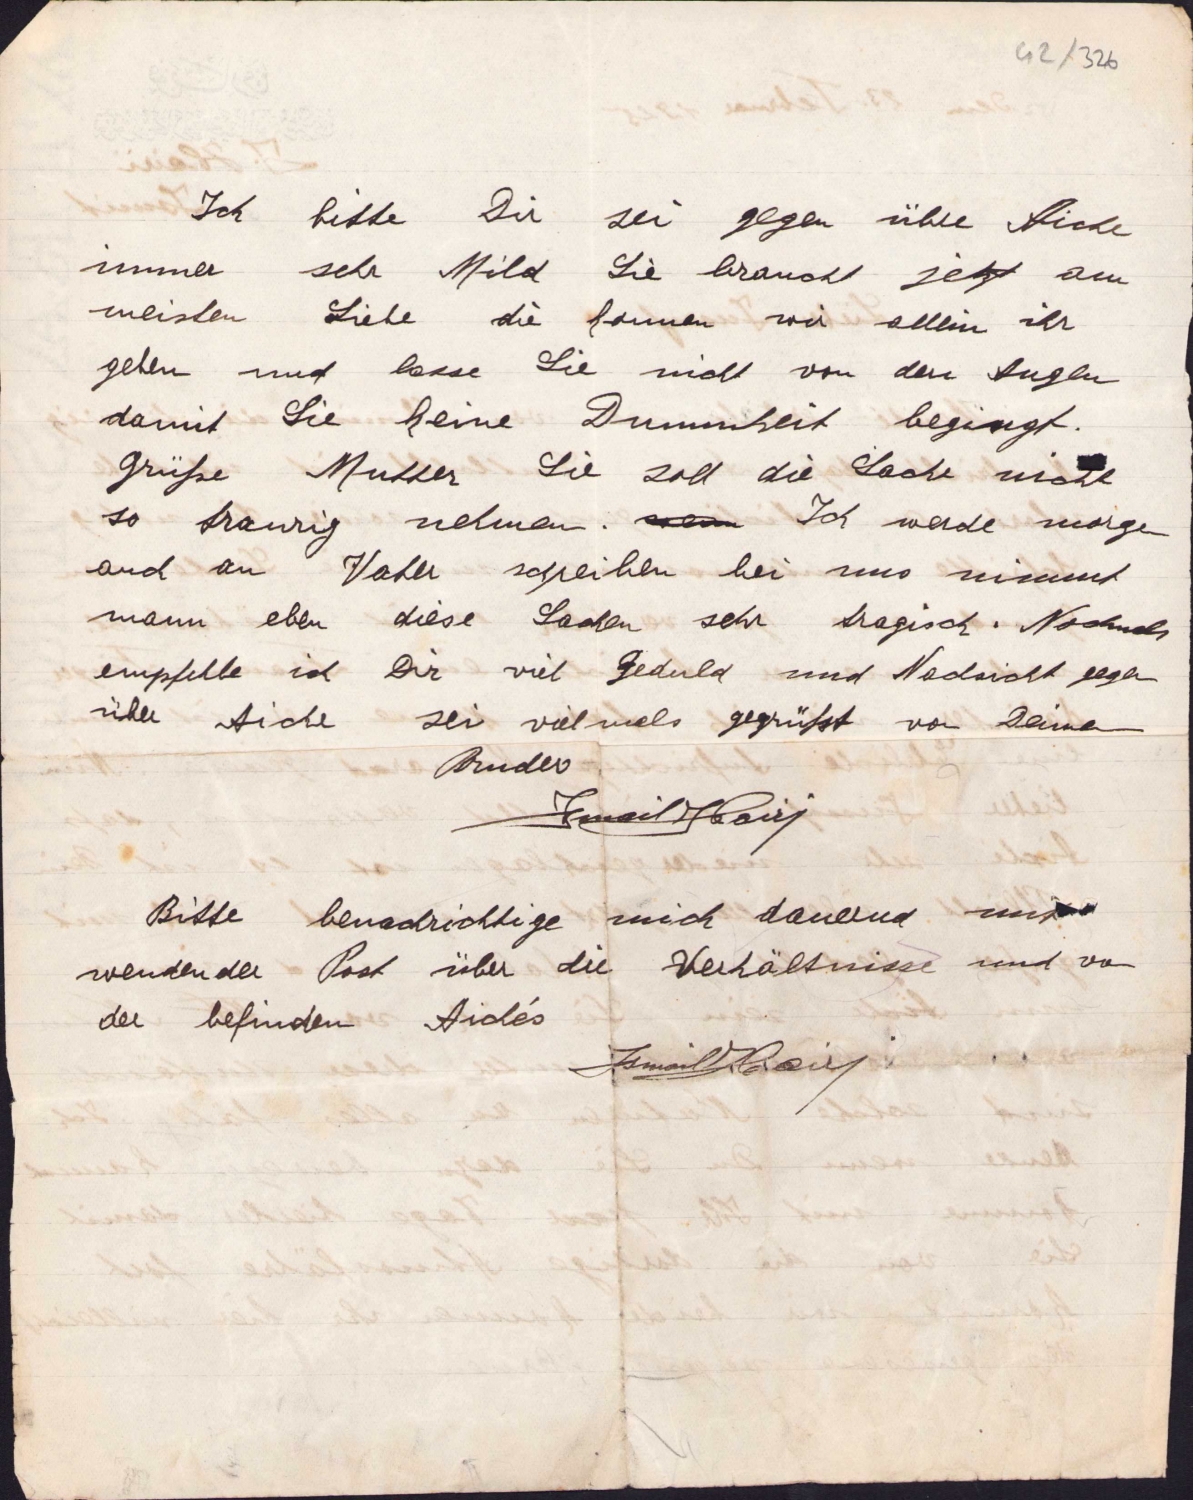 42/326
Ich bitte Dir sei gegen übre Aiche
immer sehr Mild Sie braucht jetzt am
meisten Liebe die konnen wir allein ihr
geben und lasse Sie nicht von den Augen
damit Sie keine Dummheit begingt.
Grüße Mutter Sie soll die Sache nicht
so traurig nehmen. Ich werde morgen
auch an Vater schreiben bei uns nimmt
mann eben diese Sachen sehr tragisch. Nochmals
empfehle ich Dir viel Geduld und Nachsicht gegen
über Aiche sei vielmals gegrüßt von Deinen
Bruder
Ismail Hairj
Bitte benachrichtige mich dauernd mit
wendender Post über die Verhältnisse und von
der befinden Aichés
Ismail Hairj